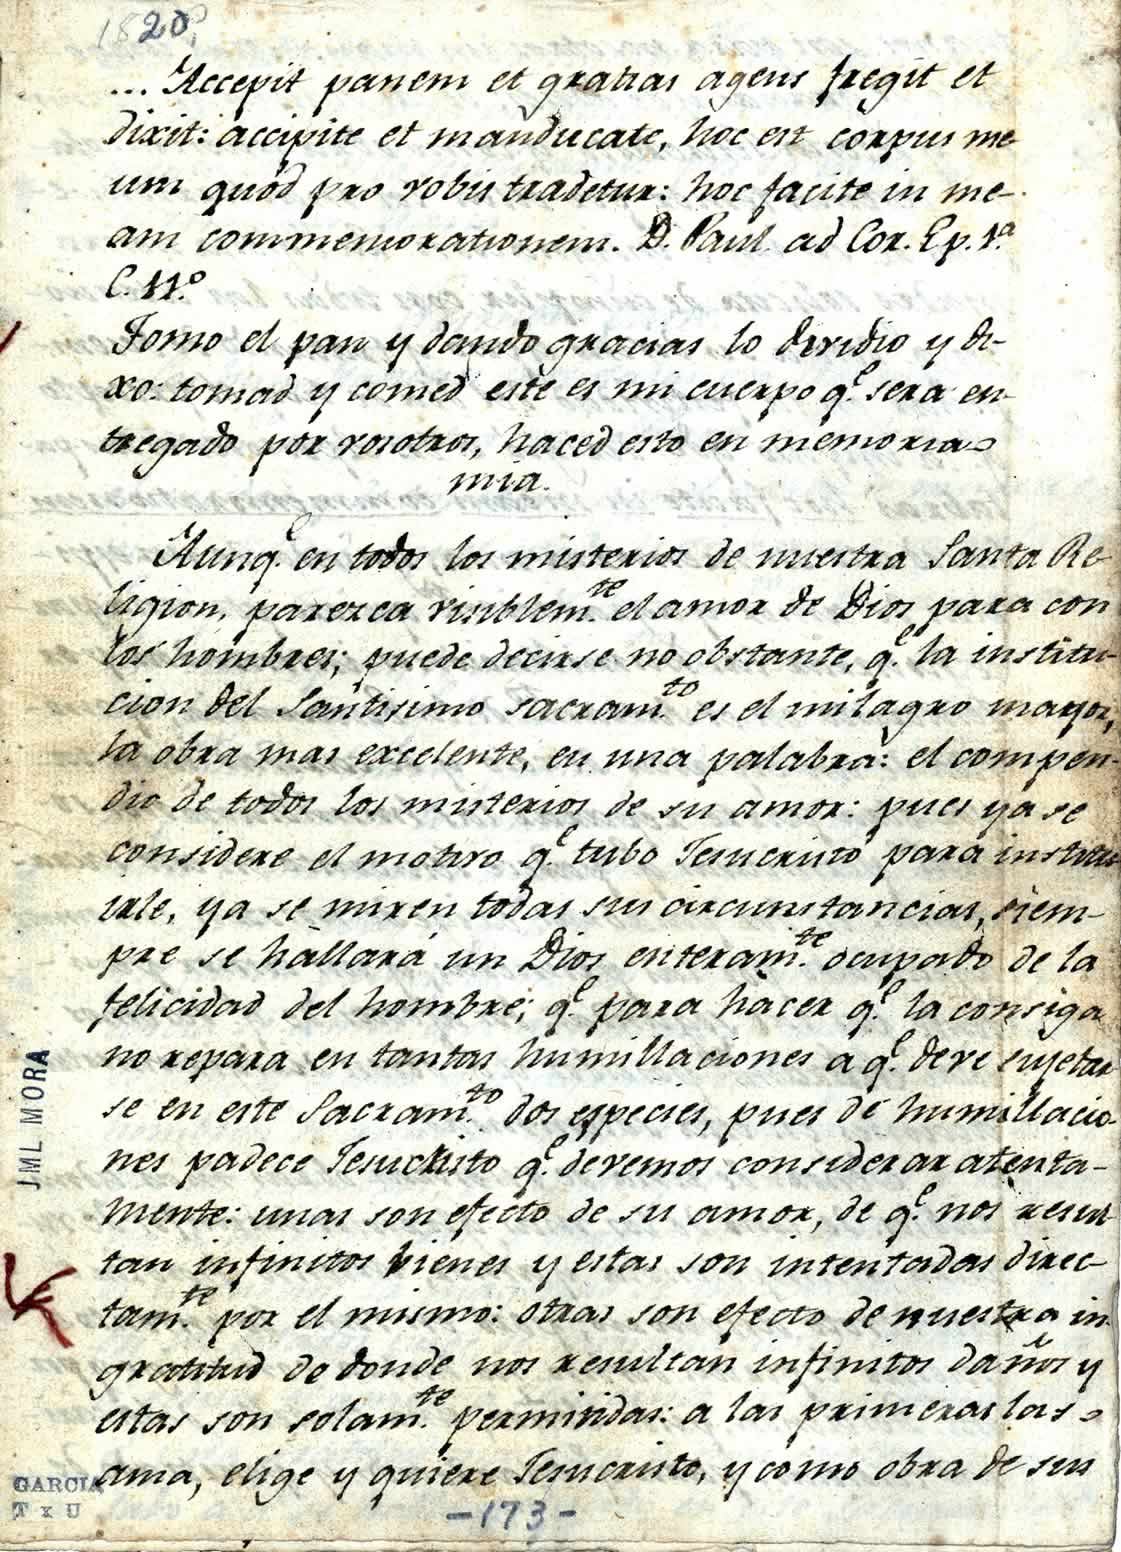 1820,
... Accepit panem et gratias agens fregit et
dixit: accipite et manducate, hoc est corpus me-
um quod pro vobis tradetur: hoc facite in me-
am commemorationem. D. Paul ad Cor. Ep. 1.a
C. 11.o
Tomo el pan y dando gracias lo dividio y di-
xo: tomad y comed este es mi cuerpo q.e sera en-
tregado por vosotros, haced esto en memoria
mia.
Aunq.e en todos los misterios de nuestra Santa Re-
ligion, parezca visiblem.te el amor de Dios para con
los hombres; puede decirse no obstante, q.e la institu-
cion del Santisimo sacram.to es el milagro mayor,
la obra mas excelente, en una palabra: el compen-
dio de todos los misterios de su amor: pues ya se
considere el motivo q.e tubo Jesucristo para institu-
irle, ya se miren todas sus circunstancias, siem-
pre se hallará un Dios enteram.te ocupado de la
felicidad del hombre; q.e para hacer q.e la consiga
no repara en tantas humillaciones a q.e deve sujetar
se en este Sacram.to dos especies, pues de humillacio-
nes padece Jesucristo q.e devemos considerar atenta-
mente: unas son efecto de su amor, de q.e nos resul-
tan infinitos bienes y estas son intentadas direc-
tam.te por el mismo: otras son efecto de nuestra in-
gratitud de donde nos resultan infinitos daños y
estas son solam.te permitidas: a las primeras las
ama, elige y quiere Jesucristo, y como obra de sus
JML MORA
GARCIA
T x U
-173-